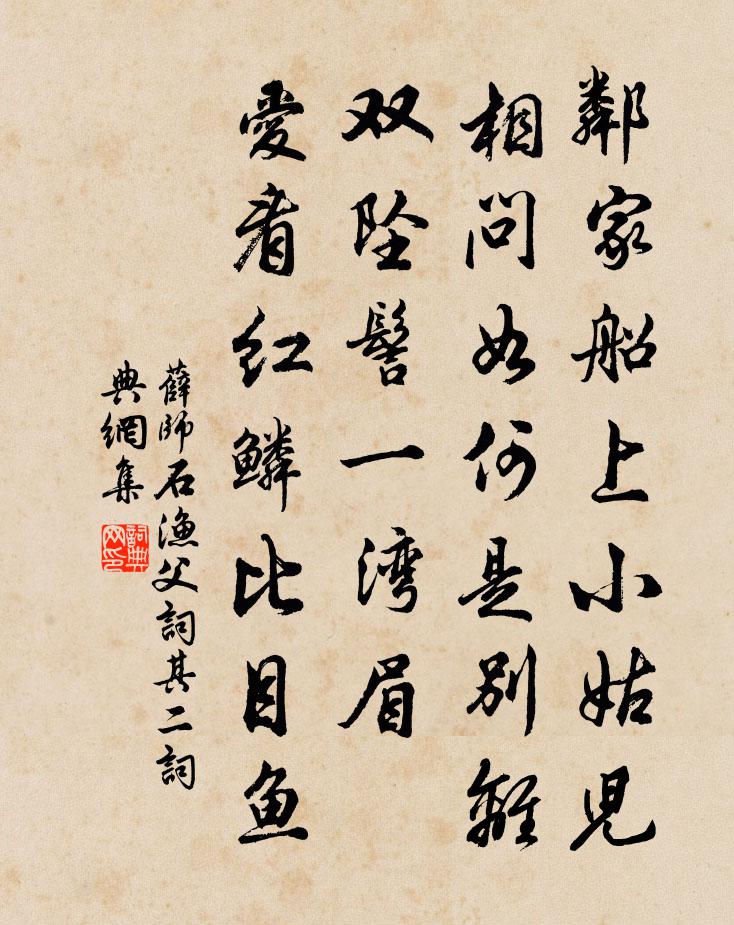 鄰家船上小姑児
相問如何是別離
双坠髻一湾眉
愛看红鱗比目鱼
薛師石漁父詞其二詞
典網集
詞典网印